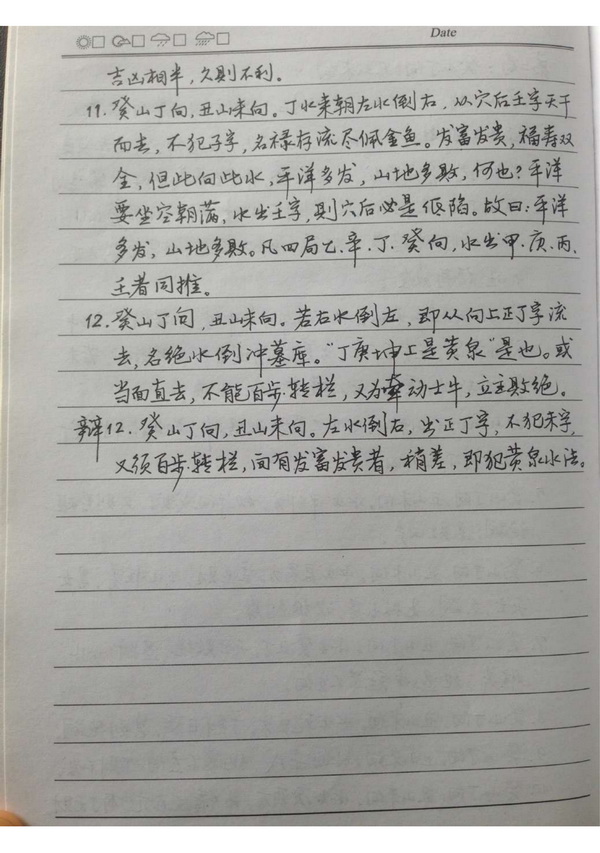 Date
吉凶相半，久则不利。
11.癸山丁向，丑山未向。丁水来朝左水倒右，从穴后壬字天干
而去，不犯子字，名禄存流尽佩金鱼。发富发贵，福寿双
全，但此向此水，平洋多发，山地多败，何也？平洋
要坐空朝满，水出壬字，则穴后必是低陷。故曰：平洋
多发，山地多败。凡四局乙.辛.丁.癸向，水出甲.庚.丙.
壬者同推。
12.癸山丁向，丑山未向。若右水倒左，即从向上正丁字流
去，名绝水倒冲墓库。“丁庚坤上是黄泉”是也。或
当面直去，不能百步转栏，又为牵动土牛，立主败绝。
辩12.癸山丁向，丑山未向。左水倒右，出正丁字，不犯未字，
又须百步转栏，间有发富发贵者，稍差，即犯黄泉水法。